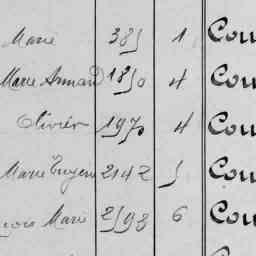 Marie 385 1 Cou
Marie Armand 1850 4 Cou
Olivier 1970 4 Cou
Marie Eugen 2142 5 Cou
Marie 2598 6 Cou